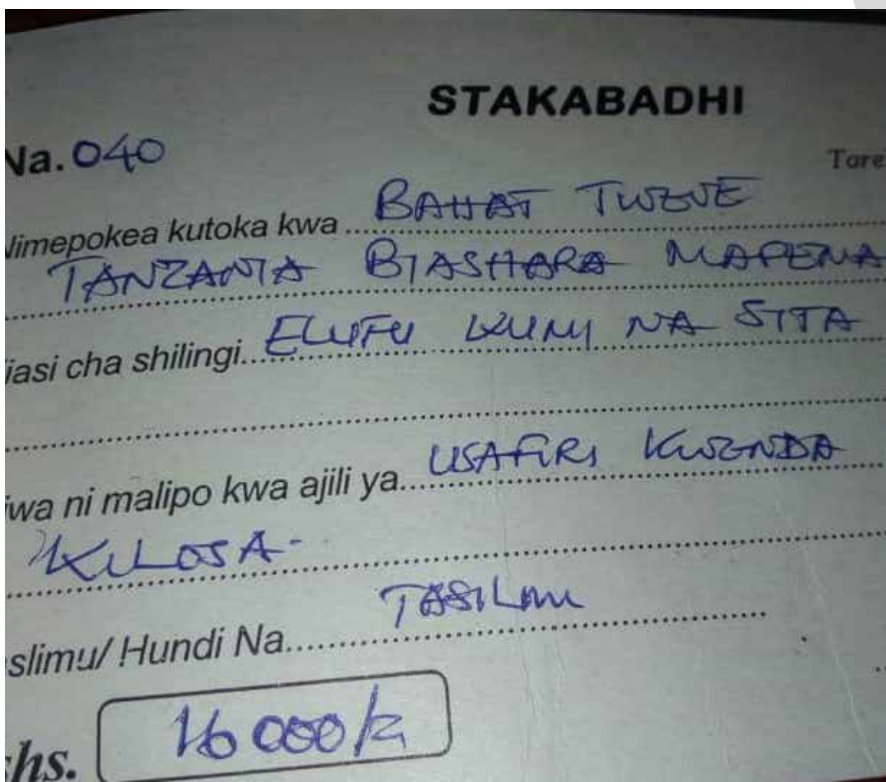 STAKABADHI
Na. 040 Tare
Nimepokea kutoka kwa BAHAT TWEVE
TANZANIA BIASHARA MAPEMA
iasi cha shilingi ELUFU KUMI NA SITA
iwa ni malipo kwa ajili ya USAFIRI KWENDA
KILOSA-
slimu/ Hundi Na. TASILIMU
hs. 16 000/=